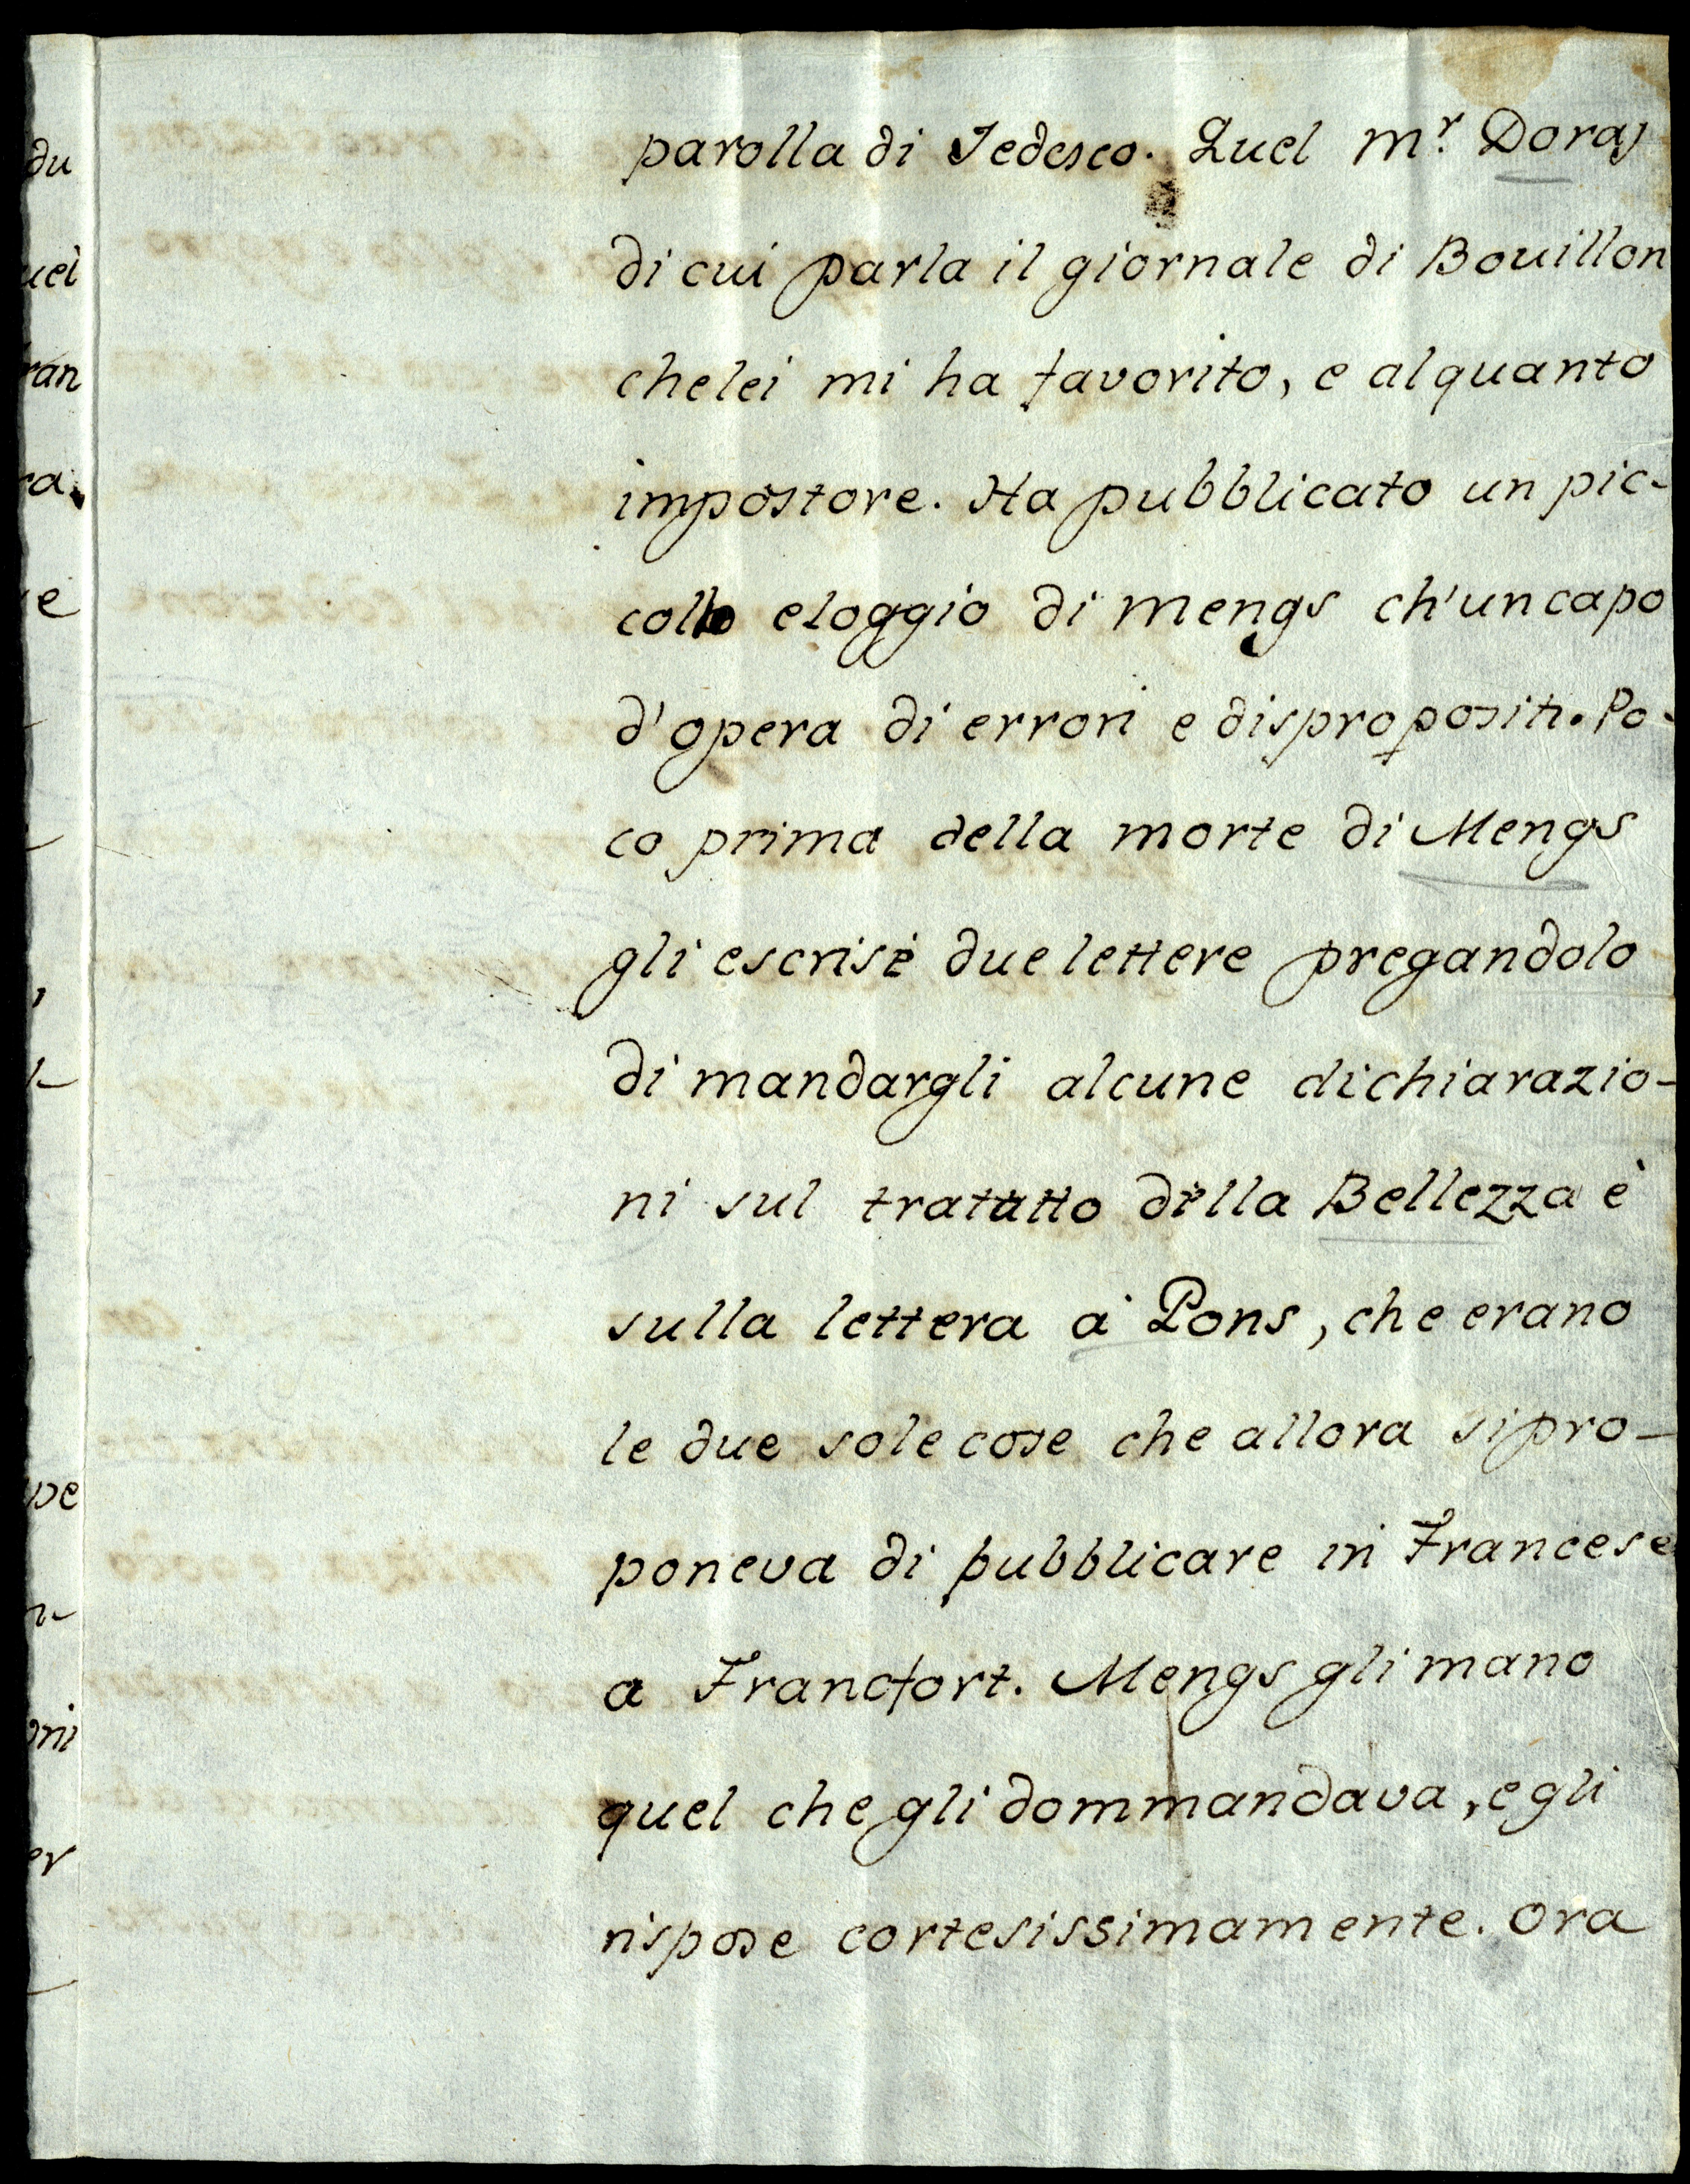 parolla di Tedesco. Quel Mr. Doraj
di cui parla il giornale di Bouillon
che lei mi ha favorito, e alquanto
impostore. Ha pubblicato un pic-
collo eloggio di Mengs ch'un capo
d'opera di errori e dispropositi. Po-
co prima della morte di Mengs
gli escrisè due lettere pregandolo
di mandargli alcune dichiarazio-
ni sul tratatto della Bellezza è
sulla lettera a Pons, che erano
le due sole cose che allora si pro-
poneva di pubblicare in Francese
a Francfort. Mengs gli mano
quel che gli dommandava, e gli
rispose cortesissimamente. Ora